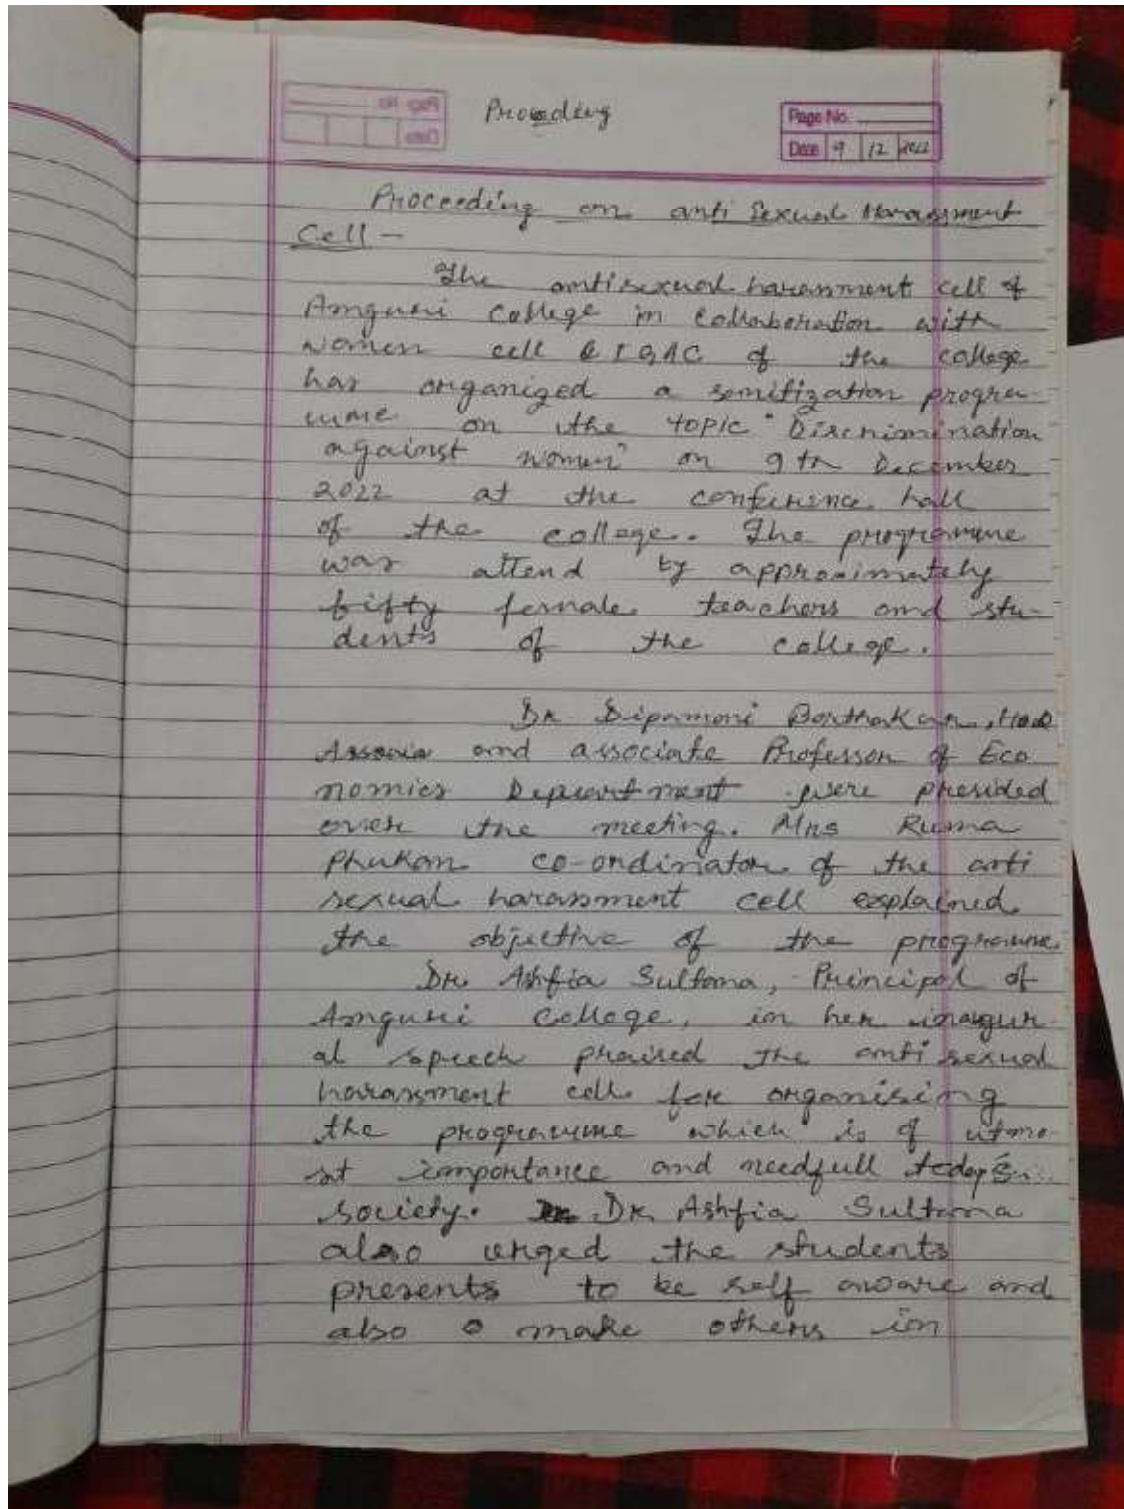 Proceding
Page No.
Date 9 12 2022
Proceeding on anti Sexual Harassment
Cell -
The antisexual harassment cell of
Amguri College in collaboration with
women cell & IQAC of the college
has organized a sensitization progra-
mme on the topic "Discrimination
against women" on 9th December
2022 at the conference hall
of the college. The programme
was attend by approximately
fifty female teachers and stu-
dents of the college.
Dr Dipamoni Borthakur, HoD
and associate Professor of Eco
nomics Department were presided
over the meeting. Mrs Ruma
Phukan co-ordinator of the anti
sexual harassment cell explained
the objective of the programme.
Dr Ashfia Sultana, Principal of
Amguri College, in her inaugur
al speech praised the anti sexual
harassment cell for organising
the programme which is of utmo-
st importance and needfull today's
society. Dr Ashfia Sultana
also urged the students
presents to be self aware and
also make others in